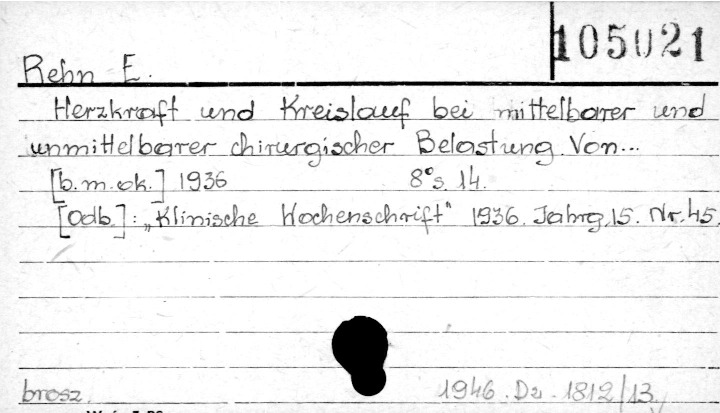 105021
Rehn E.
Herzkraft und Kreislauf bei mittelbarer und
unmittelbarer chirurgischer Belastung. Von...
[b.m.ok.] 1936 8° s. 14.
[Odb.]: „Klinische Wochenschrift" 1936. Jahrg. 15. Nr. 45.
brosz. 1946. Dz. 1812/13.